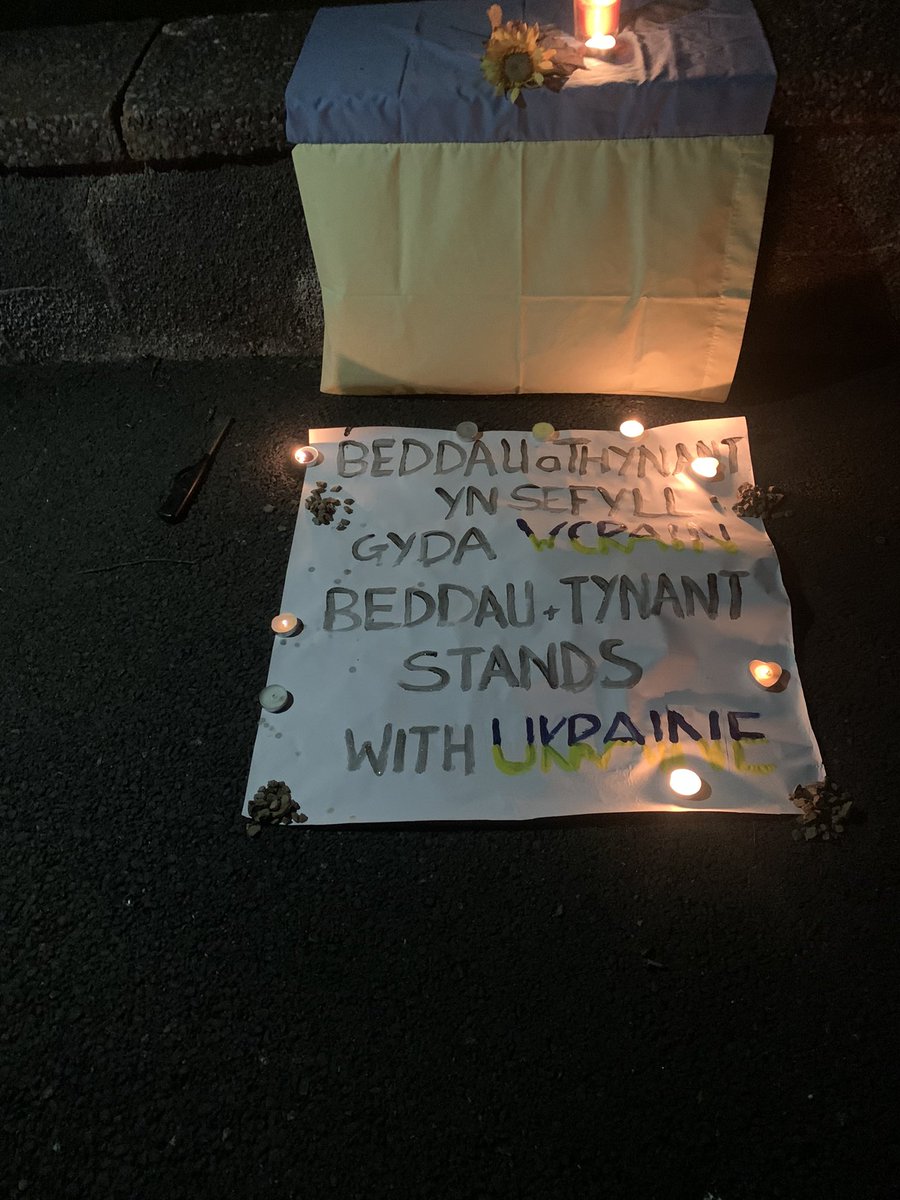 BEDDAU a THYNANT
YN SEFYLL
GYDA WCRAIN
BEDDAU + TYNANT
STANDS
WITH UKRAINE